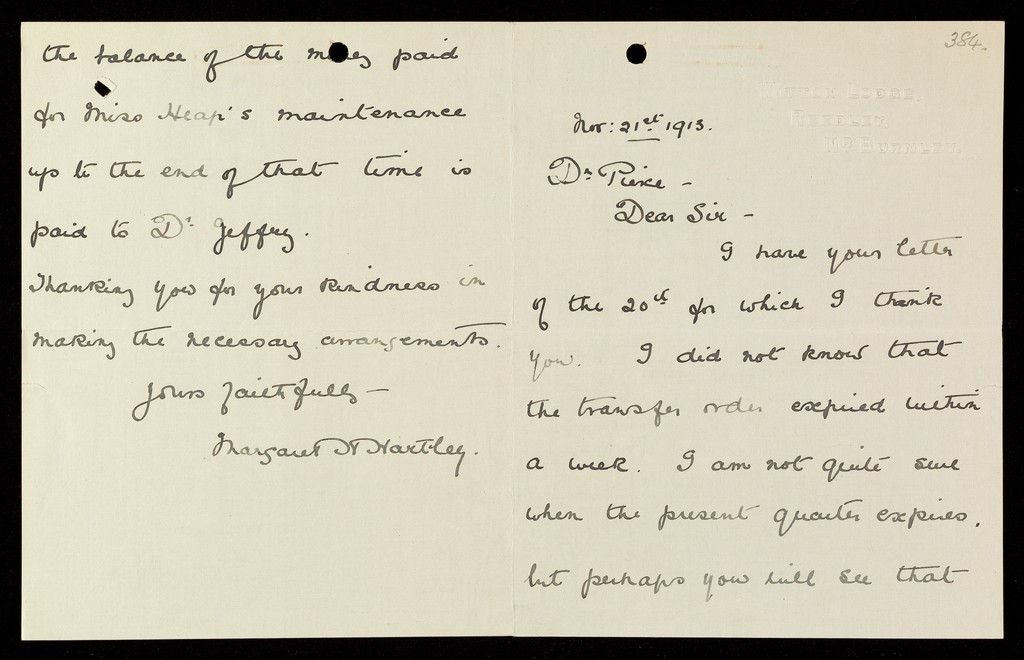 384.
Lodge,
Nr Burnley.
Nov: 21st 1913.
Dr. Pierce -
Dear Sir -
I have your letter
of the 20th for which I thank
you. I did not know that
the transfer order expired within
a week. I am not quite sure
when the present quarter expires,
but perhaps you will see that
the balance of the money paid
for Miss Heap's maintenance
up to the end of that time is
paid to Dr. Jeffrey.
Thanking you for your kindness in
making the necessary arrangements.
Yours faithfully -
Margaret H Hartley.